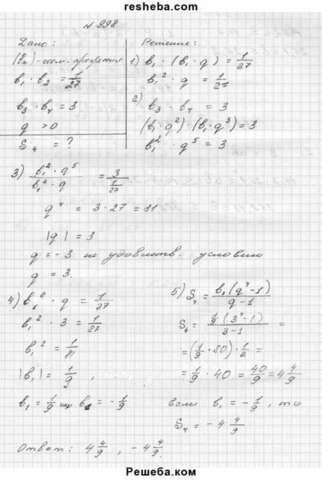 resheba.com
№ 898
Дано:
(bₙ) - геом. прогрессия
b₁ · b₂ = 1/27
b₃ · b₄ = 3
q > 0
S₄ = ?
Решение:
1) b₁ · (b₁ · q) = 1/27
b₁² · q = 1/27
2) b₃ · b₄ = 3
(b₁ · q²) · (b₁ · q³) = 3
b₁² · q⁵ = 3
3) b₁² · q⁵ / b₁² · q = 3 / 1/27
q⁴ = 3 · 27 = 81
|q| = 3
q = -3 не удовлетв. условию
q = 3.
4) b₁² · q = 1/27
b₁² · 3 = 1/27
b₁² = 1/81
|b₁| = 1/9
b₁ = 1/9 или b₁ = -1/9
5) S₄ = b₁(q⁴-1) / q-1
S₄ = 1/9 (3⁴-1) / 3-1 =
= (1/9 · 80) · 1/2 =
= 1/9 · 40 = 40/9 = 4 4/9
если b₁ = -1/9, то
S₄ = -4 4/9
Ответ: 4 4/9, -4 4/9.
Решеба.com